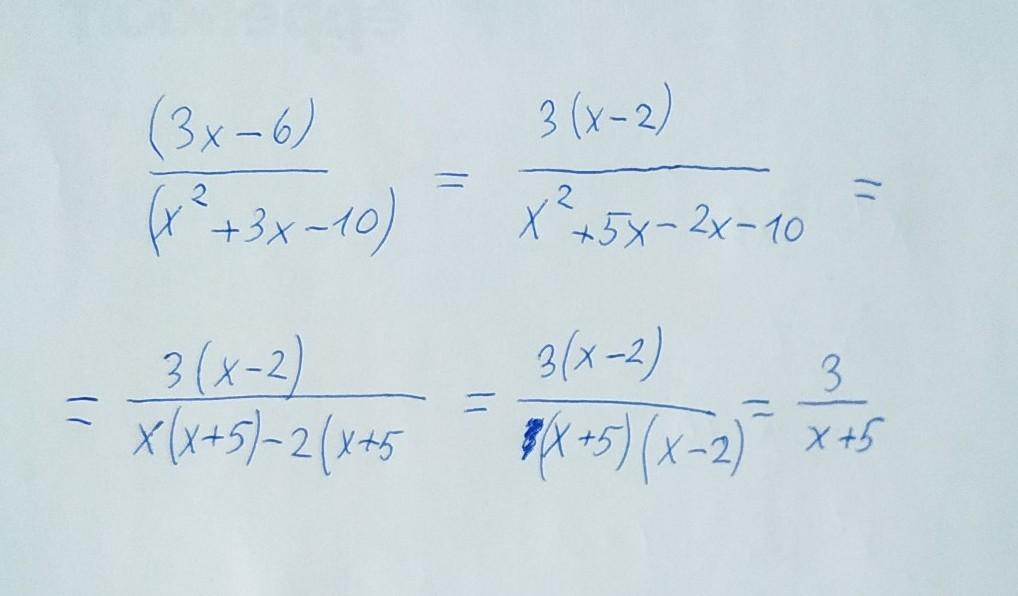 (3x-6)/(x²+3x-10) = 3(x-2)/x²+5x-2x-10 =
= 3(x-2)/x(x+5)-2(x+5 = 3(x-2)/(x+5)(x-2) = 3/x+5